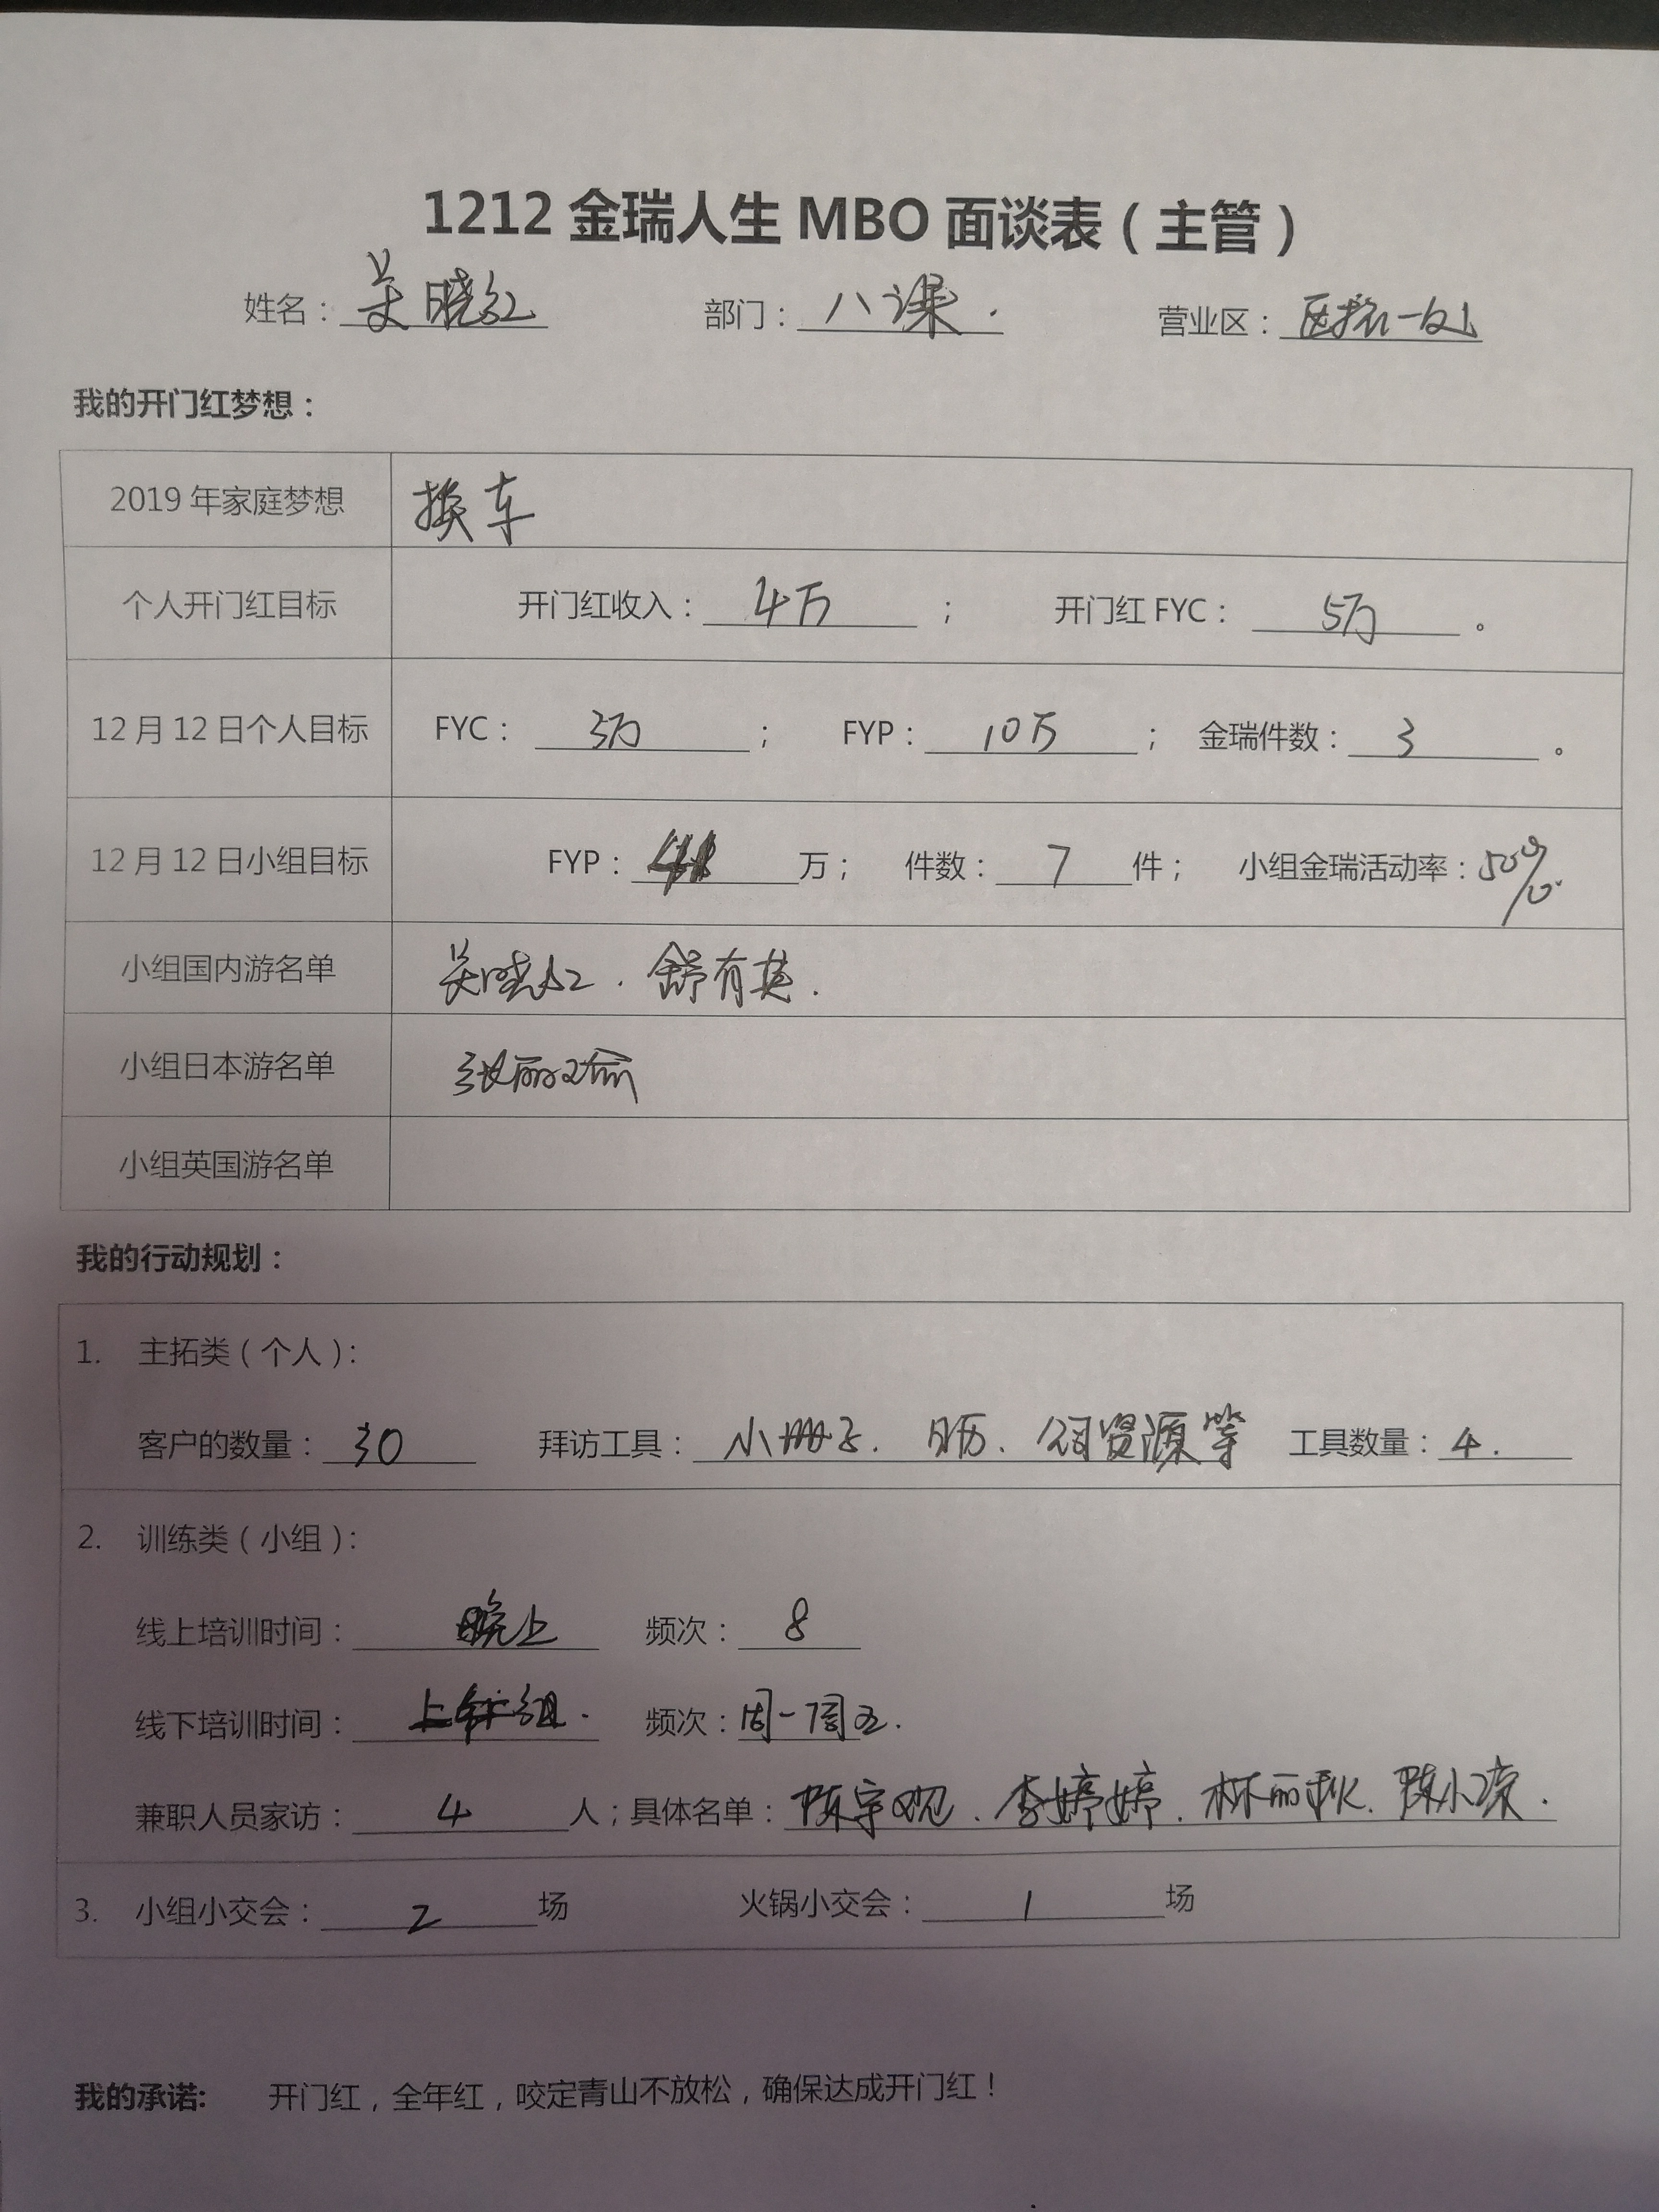 1212 金瑞人生 MBO 面谈表（主管）
姓名：吴晓红 部门：八课. 营业区：
我的开门红梦想：
2019 年家庭梦想 换车
个人开门红目标 开门红收入：4万； 开门红 FYC：5万。
12 月 12 日个人目标 FYC：3万； FYP：10万； 金瑞件数：3。
12 月 12 日小组目标 FYP： 万； 件数：7件； 小组金瑞活动率：50%
小组国内游名单 吴晓红. 舒有英.
小组日本游名单 张丽瑜
小组英国游名单
我的行动规划：
1. 主拓类（个人）：
客户的数量：30 拜访工具：小册子. 日历、公司资源等 工具数量：4.
2. 训练类（小组）：
线上培训时间：晚上 频次：8
线下培训时间： 频次：周一周五.
兼职人员家访：4人；具体名单：陈宇观. 李婷婷. 林丽秋. 陈小凉.
3. 小组小交会：2场 火锅小交会：1场
我的承诺: 开门红，全年红，咬定青山不放松，确保达成开门红！